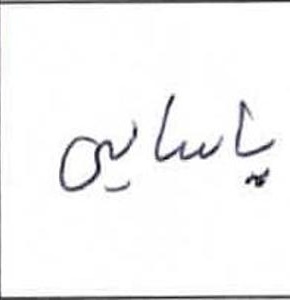 پاسایی